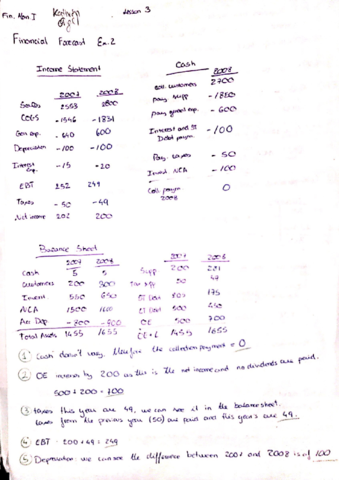 Fin. Man I
Lesson 3
Financial Forecast Ex. 2
Income Statement
2007 2008
Sales 2553 2800
COGS -1546 -1831
Gen exp. -640 600
Depreciation -100 -100
Interest exp. -15 -20
EBT 252 249
Taxes -50 -49
Net income 202 200
Cash
2008
Coll. customers 2700
Paym. supp -1880
Paym general exp. -600
Interest and ST Debt paym -100
Pay. taxes -50
Invest NCA -100
Coll. paym. 2008 0
Balance Sheet
2007 2008
Cash 5 5
Customers 200 300
Invent 550 650
NCA 1500 1600
Ac Dep -800 -900
Total Assets 1455 1655
2007 2008
Supp 200 231
50 49
175
LT Debt 500 450
OE 500 700
1455 1655
① Cash doesn't vary, therefore the collection payment = 0
② OE increases by 200 as this is the net income and no dividends are paid.
500 + 200 = 700
③ taxes this year are 49, we can see it in the balance sheet.
taxes from the previous year (50) are paid and this year's are 49.
④ EBT 200 + 49 = 249
⑤ Depreciation: we can see the difference between 2007 and 2008 is of 100